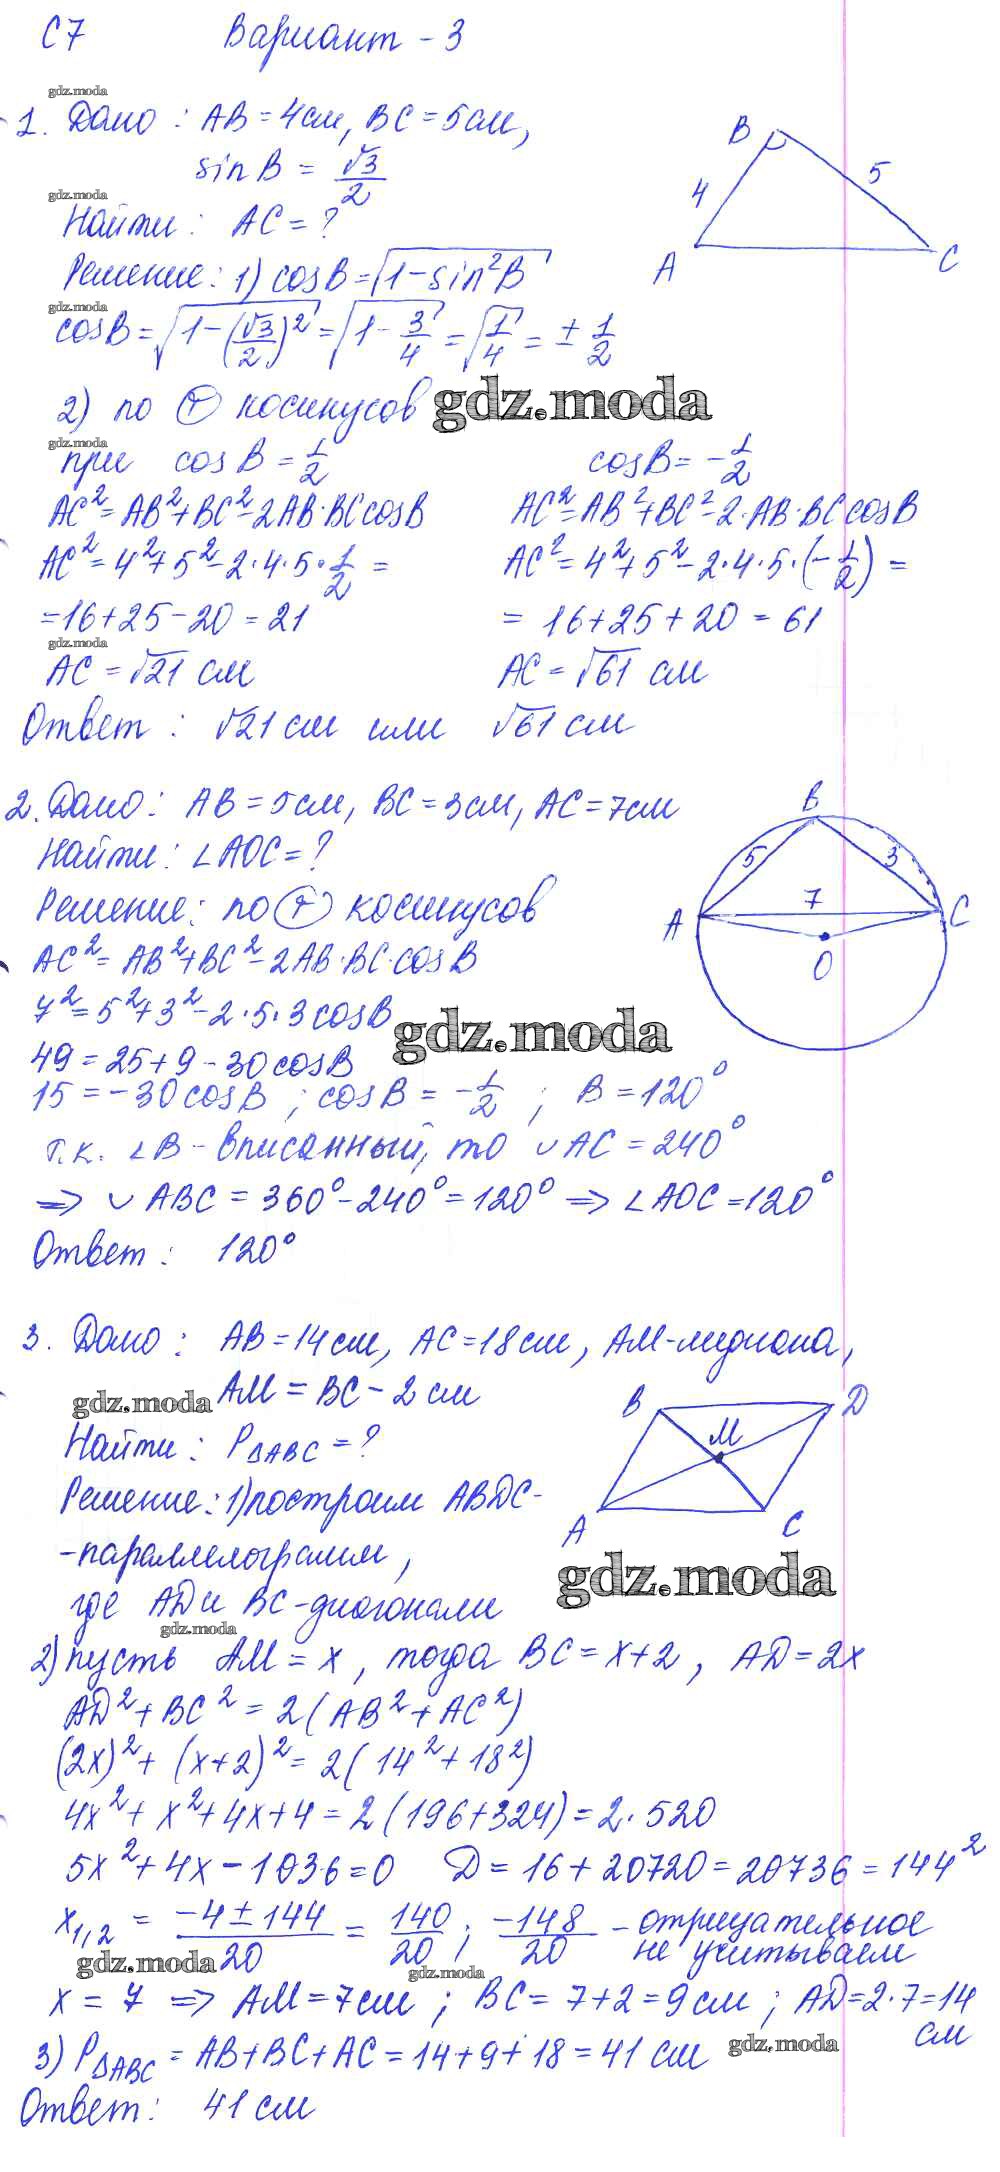 С7 Вариант - 3
gdz.moda
1. Дано: AB = 4см, BC = 5см,
sin B = √3/2
gdz.moda
Найти: AC = ?
B 4 5 A C
Решение: 1) cosB = √(1 - sin²B)
gdz.moda
cosB = √(1 - (√3/2)²) = √(1 - 3/4) = √(1/4) = ± 1/2
2) по Ⓣ косинусов gdz.moda
gdz.moda
при cosB = 1/2 cosB = - 1/2
AC² = AB² + BC² - 2AB·BC cosB AC² = AB² + BC² - 2·AB·BC cosB
AC² = 4² + 5² - 2·4·5·1/2 = AC² = 4² + 5² - 2·4·5·(-1/2) =
= 16 + 25 - 20 = 21 = 16 + 25 + 20 = 61
gdz.moda
AC = √21 см AC = √61 см
Ответ: √21 см или √61 см
2. Дано: AB = 5см, BC = 3см, AC = 7см
Найти: ∠AOC = ?
B 5 3 7 A C O
Решение: по Ⓣ косинусов
AC² = AB² + BC² - 2AB·BC·cosB
7² = 5² + 3² - 2·5·3cosB
gdz.moda
49 = 25 + 9 - 30cosB
15 = -30cosB; cosB = - 1/2; B = 120°
т.к. ∠B - вписанный, то ∪AC = 240°
⇒ ∪ABC = 360° - 240° = 120° ⇒ ∠AOC = 120°
Ответ: 120°
3. Дано: AB = 14см, AC = 18см, AM - медиана,
gdz.moda
AM = BC - 2 см
Найти: P△ABC = ?
B D M A C
Решение: 1) построим ABDC -
- параллелограмм,
gdz.moda
где AD и BC - диагонали
gdz.moda
2) пусть AM = x, тогда BC = x + 2, AD = 2x
AD² + BC² = 2(AB² + AC²)
(2x)² + (x + 2)² = 2(14² + 18²)
4x² + x² + 4x + 4 = 2(196 + 324) = 2·520
5x² + 4x - 1036 = 0 D = 16 + 20720 = 20736 = 144²
x₁,₂ = (-4 ± 144)/20 = 140/20; -148/20 - отрицательное
не учитываем
gdz.moda
gdz.moda
x = 7 ⇒ AM = 7см; BC = 7 + 2 = 9см; AD = 2·7 = 14
см
3) P△ABC = AB + BC + AC = 14 + 9 + 18 = 41 см gdz.moda
Ответ: 41 см